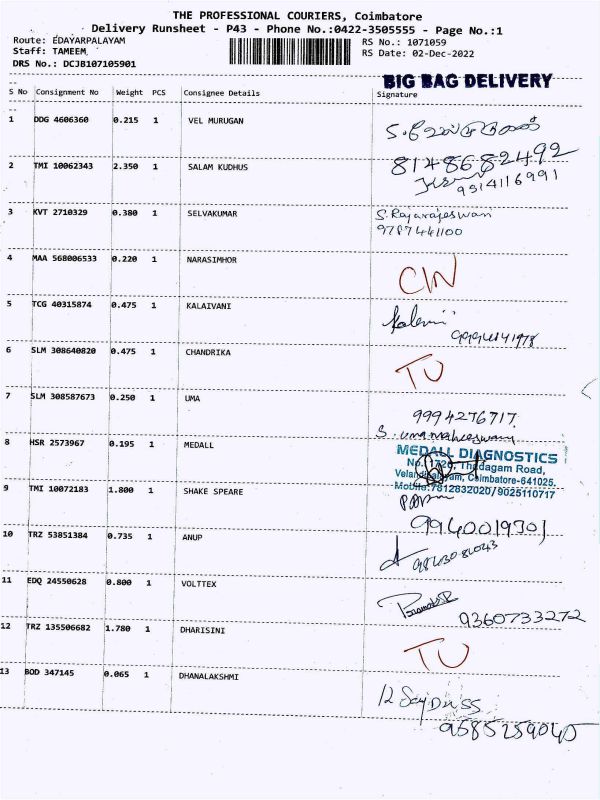 THE PROFESSIONAL COURIERS, Coimbatore
Delivery Runsheet - P43 - Phone No.:0422-3505555 - Page No.:1
Route: EDAYARPALAYAM RS No.: 1071059
Staff: TAMEEM RS Date: 02-Dec-2022
DRS No.: DCJB107105901
BIG BAG DELIVERY
S No Consignment No Weight PCS Consignee Details Signature
1 DDG 4606360 0.215 1 VEL MURUGAN
8148682492
2 TMI 10062343 2.350 1 SALAM KUDHUS
9514116991
3 KVT 2710329 0.380 1 SELVAKUMAR S. Rajarajeswari
9787441100
4 MAA 568006533 0.220 1 NARASIMHOR
CIN
5 TCG 40315874 0.475 1 KALAIVANI
6 SLM 308640820 0.475 1 CHANDRIKA
TU
7 SLM 308587673 0.250 1 UMA
9994276717
S. umamaheswary
8 HSR 2573967 0.195 1 MEDALL
MEDALL DIAGNOSTICS
Thadagam Road,
Coimbatore-641025.
Mobile:7812832020/9025110717
9 TMI 10072183 1.800 1 SHAKE SPEARE
9940019701
10 TRZ 53851384 0.735 1 ANUP
11 EDQ 24550628 0.800 1 VOLTTEX
9360733272
12 TRZ 135506682 1.780 1 DHARISINI
TU
13 BOD 347145 0.065 1 DHANALAKSHMI
9585259045